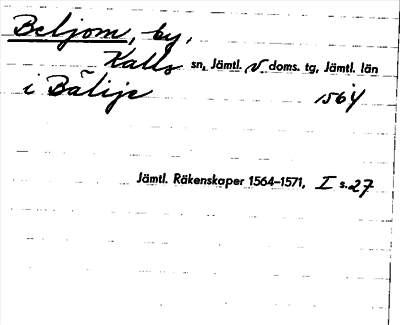 Beljom, by,
Kalls sn, Jämtl. v doms. tg, Jämtl. län
i Bälije 1564
Jämtl. Räkenskaper 1564-1571, I s. 27